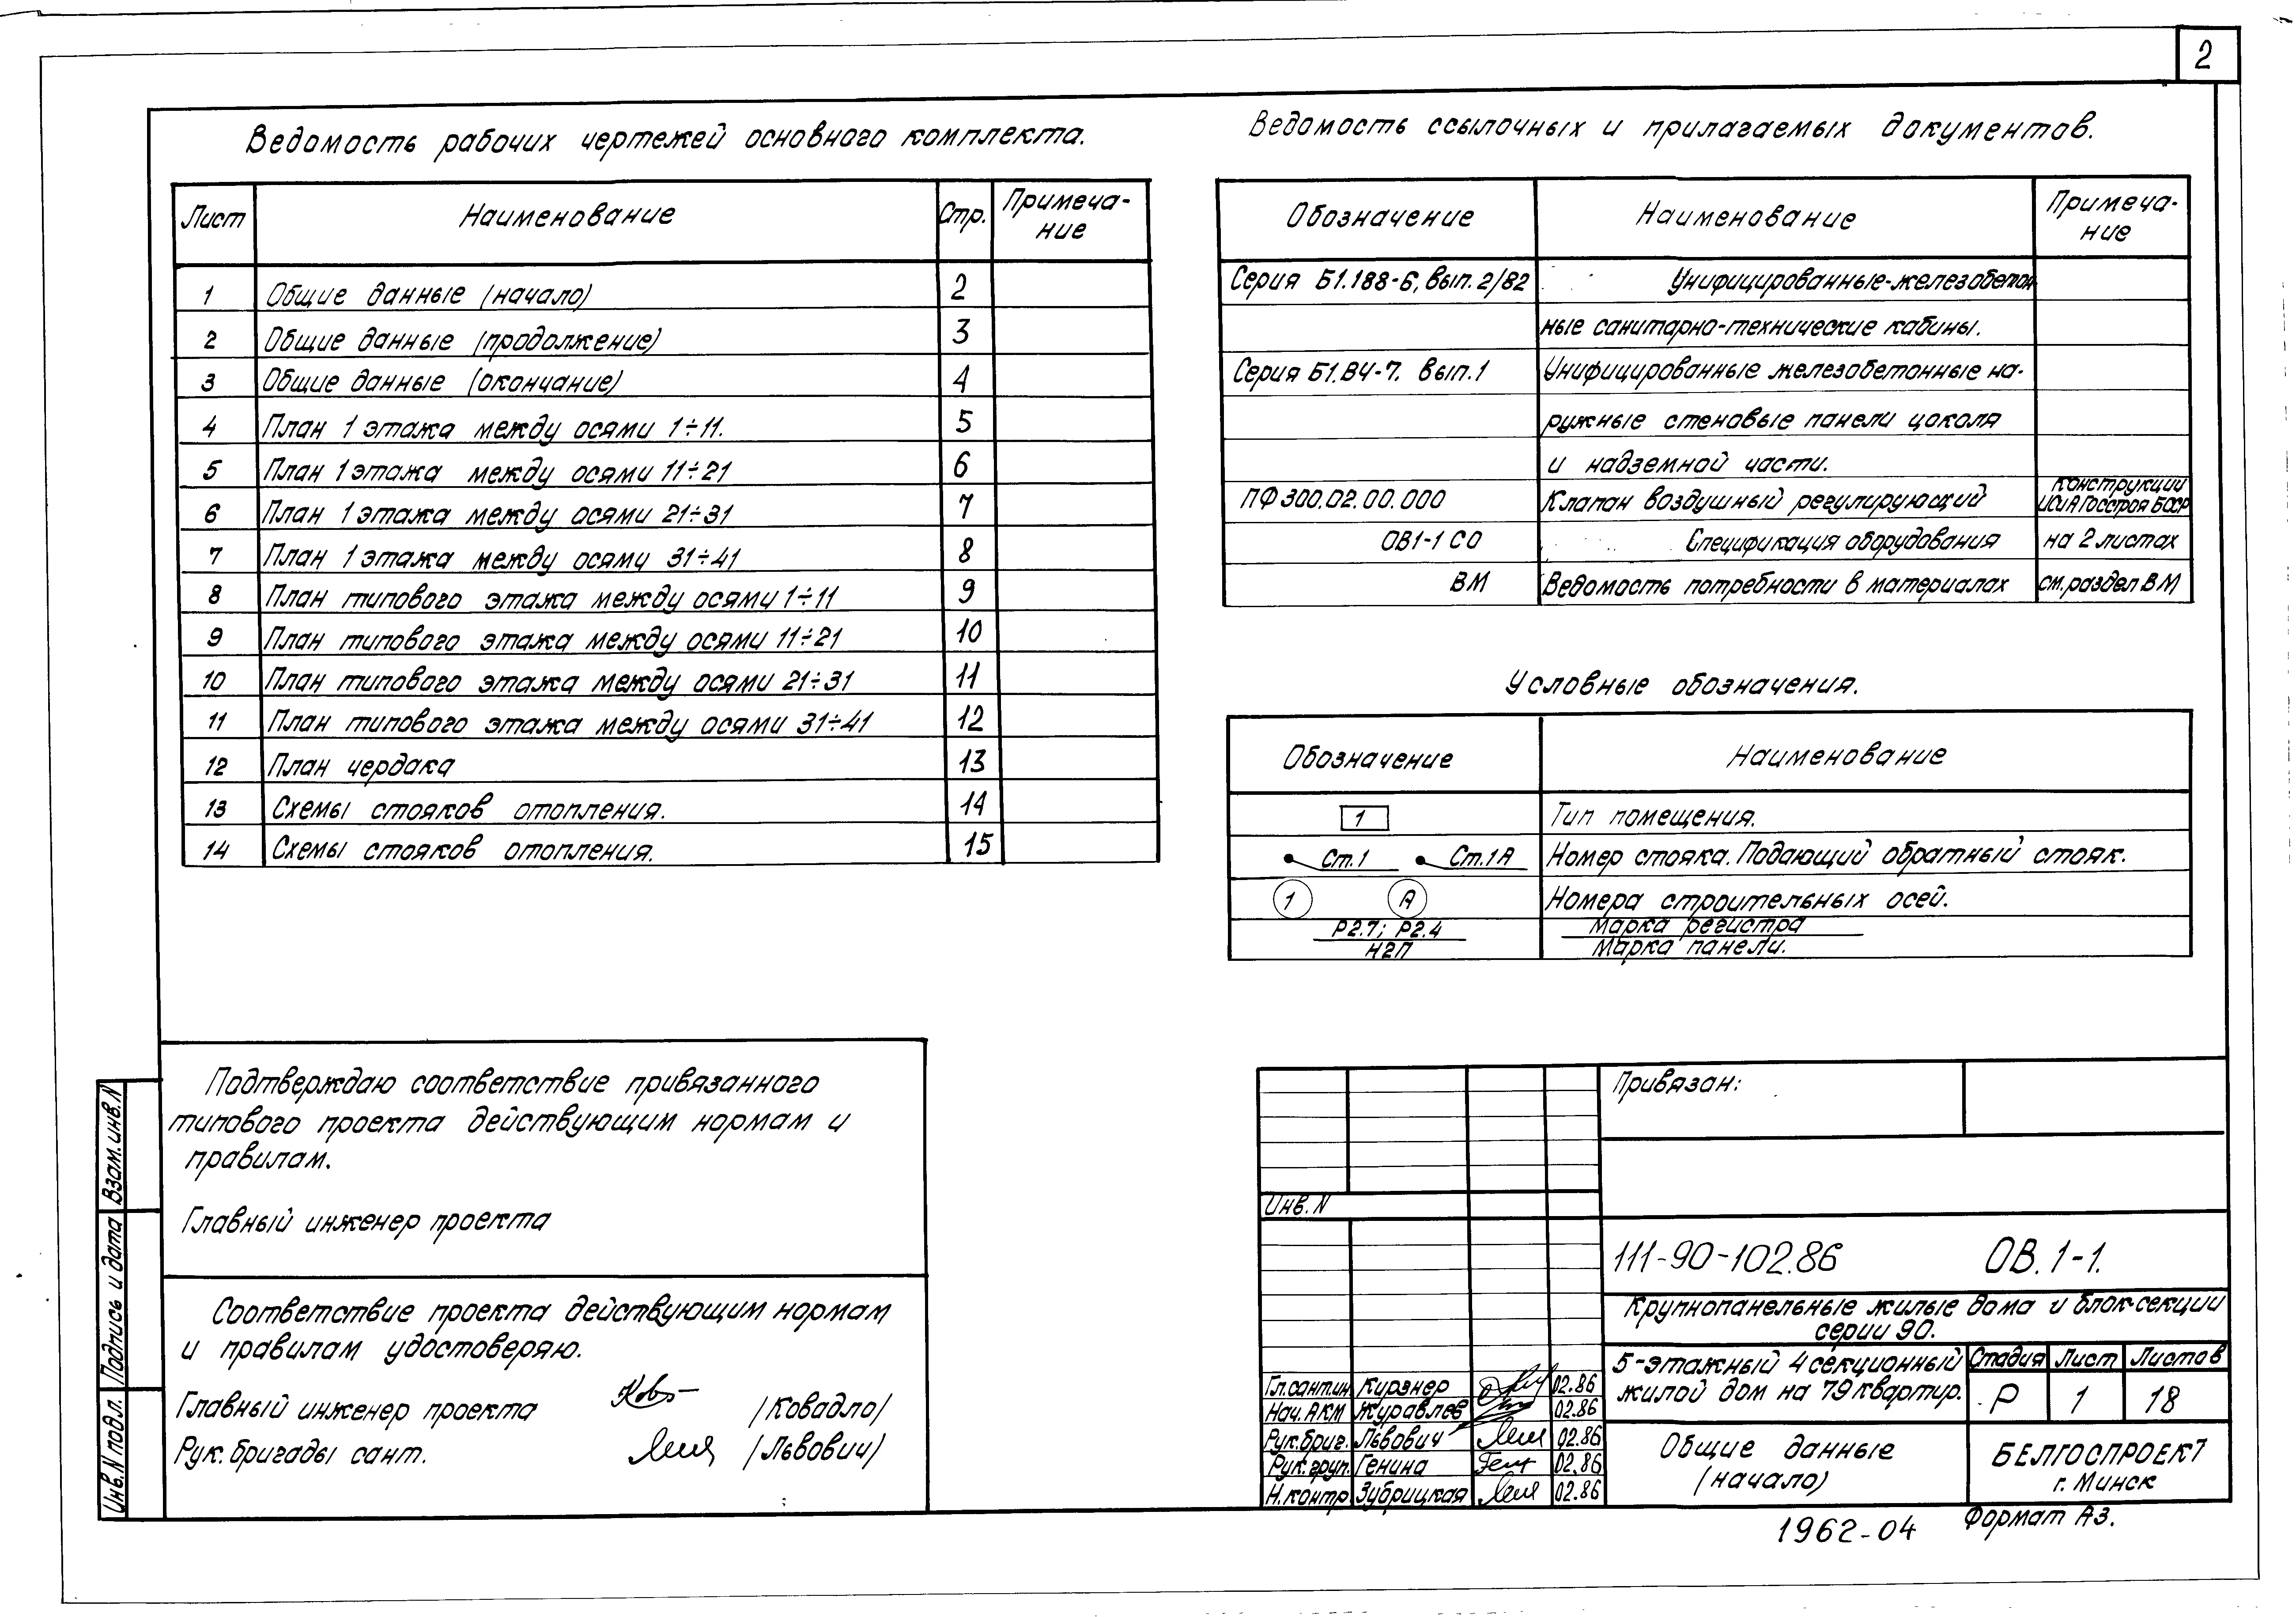 2
Ведомость рабочих чертежей основного комплекта.
Лист Наименование Стр. Примеча-
ние
1 Общие данные (начало) 2
2 Общие данные (продолжение) 3
3 Общие данные (окончание) 4
4 План 1 этажа между осями 1÷11. 5
5 План 1 этажа между осями 11÷21 6
6 План 1 этажа между осями 21÷31 7
7 План 1 этажа между осями 31÷41 8
8 План типового этажа между осями 1÷11 9
9 План типового этажа между осями 11÷21 10
10 План типового этажа между осями 21÷31 11
11 План типового этажа между осями 31÷41 12
12 План чердака 13
13 Схемы стояков отопления. 14
14 Схемы стояков отопления. 15
Ведомость ссылочных и прилагаемых документов.
Обозначение Наименование Примеча-
ние
Серия Б1.188-6, вып. 2/82 Унифицированные-железобетон
ные санитарно-технические кабины.
Серия Б1.В4-7. вып.1 Унифицированные железобетонные на-
ружные стеновые панели цоколя
и надземной части.
ПФ300.02.00.000 Клапан воздушный регулирующий конструкции
ИСиА Госстроя БССР
ОВ1-1 СО Спецификация оборудования на 2 листах
ВМ Ведомость потребности в материалах см. раздел ВМ
Условные обозначения.
Обозначение Наименование
1 Тип помещения.
Ст.1 Ст.1А Номер стояка. Подающий обратный стояк.
1 А Номера строительных осей.
Р2.7; Р2.4 Марка регистра
Н2П Марка панели.
Подтверждаю соответствие привязанного
типового проекта действующим нормам и
правилам.
Главный инженер проекта
Соответствие проекта действующим нормам
и правилам удостоверяю.
Главный инженер проекта /Ковадло/
Рук. бригады сант. /Львович/
Взам. инв. N
Подпись и дата
Инв. N подл.
Привязан:
Инв. N
111-90-102.86 ОВ. 1-1.
Крупнопанельные жилые дома и блок-секции
серии 90.
5-этажный 4 секционный
жилой дом на 79 квартир.
Стадия Лист Листов
Р 1 18
Гл. сант.ин Курзнер 02.86
Нач. АКМ Журавлев 02.86
Рук. бриг. Львович 02.86
Рук. груп. Генина 02.86
Н. контр Зубрицкая 02.86
Общие данные
(начало)
БЕЛГОСПРОЕКТ
г. Минск
1962-04 Формат А3.